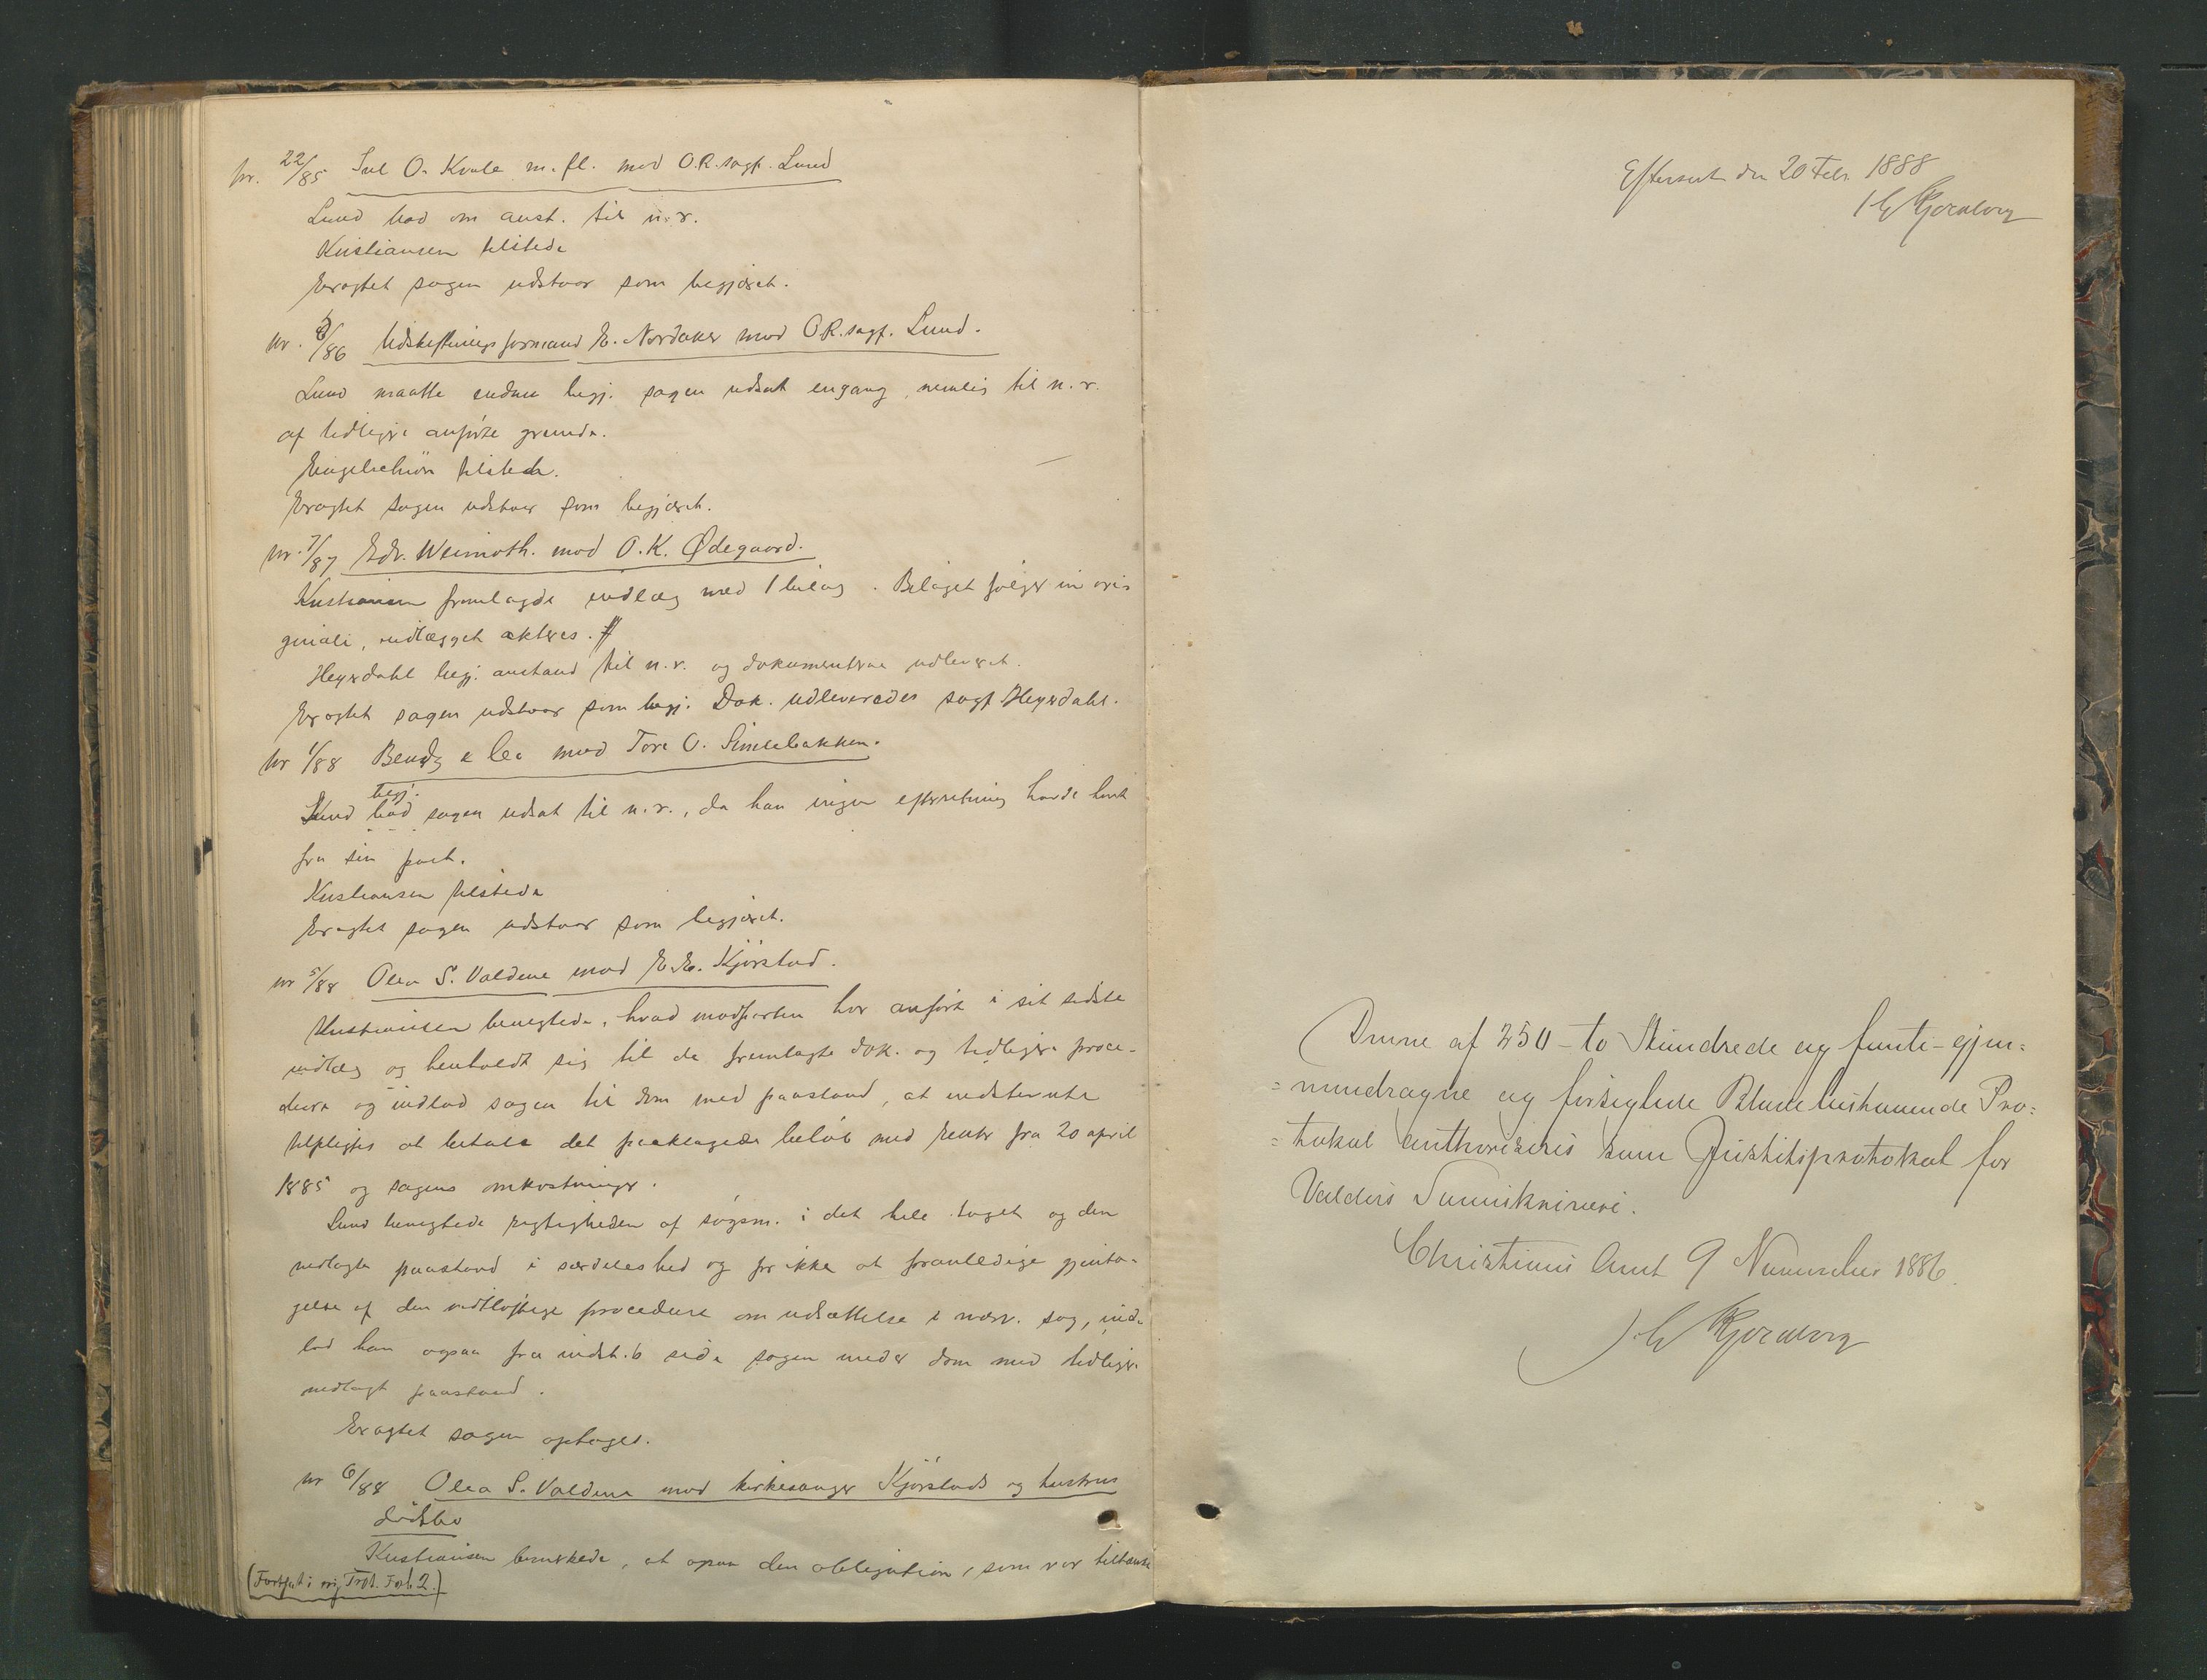 nr. 22/85 Ivel O. Kvale m. fl. mod O.R.sagf. Lund
Lund bad om anst. til n. r.
Kristiansen tilstede
Eragtet sagen udstaar som begjæret.
nr. 8/86 Udskiftningsformand E. Nordaker mod O.R.sagf. Lund.
Lund maatte endnu begj. sagen udsat engang, nemlig til n. r.
af tidligere anførte grunde.
Engelschiøn tilstede.
Eragtet sagen udstaar som begjæret.
nr. 7/87 Edv. Weimoth. mod O. K. Ødegaard.
Kristiansen fremlagde indlæg med 1 bilag. Bilaget følger in ori-
ginali, indlægget akteres.
Heyerdahl begj. anstand til n. r. og dokumenterne udleveret.
Eragtet sagen udstaar som begj. Dok. udleveredes sagf Heyerdahl.
nr 1/88 Bendz & Co mod Tore O. Simlebakken.
begj.
Lund bad sagen udsat til n. r., da han ingen efterretning havde havt
fra sin part.
Kristiansen tilstede
Eragtet sagen udstaar som begjæret.
nr 5/88 Olea S. Valdene mod E. E. Kjørstad.
Kristiansen benegtede, hvad modparten har anført i sit sidste
indlæg og henholdt sig til de fremlagte dok. og tidligere proce-
dure og indlod sagen til dom med paastand, at indstevnte
tilpligtes at betale det paaklagede beløb med renter fra 20 april
1885 og sagens omkostninger.
Lund benegtede rigtigheden af søgsm. i det hele taget og den
nedlagte paastand i særdeleshed og for ikke at foranledige gjenta-
gelse af den vidtløftige procedure om udsættelse i nærv. sag, ind-
lod han ogsaa fra indst.s side sagen under dom med tidligere
nedlagt paastand.
Eragtet sagen optages.
nr 6/88 Olea S. Valdene mod kirkesanger Kjørstads og hustrus
dødsbo
Kristiansen bemerkede, at ogsaa den obligation, som var
(Fortsat i Prot. Fol. 2.)
Efterseet den 20 Febr 1888
Denne af 250 - to Hundrede og femti - gjen-
=nemdragne og forseglede Blade bestaaende Pro=
=tokol authoriseres som Justitsprotokol for
Valders Sorenskriveri.
Christians Amt 9 November 1886.